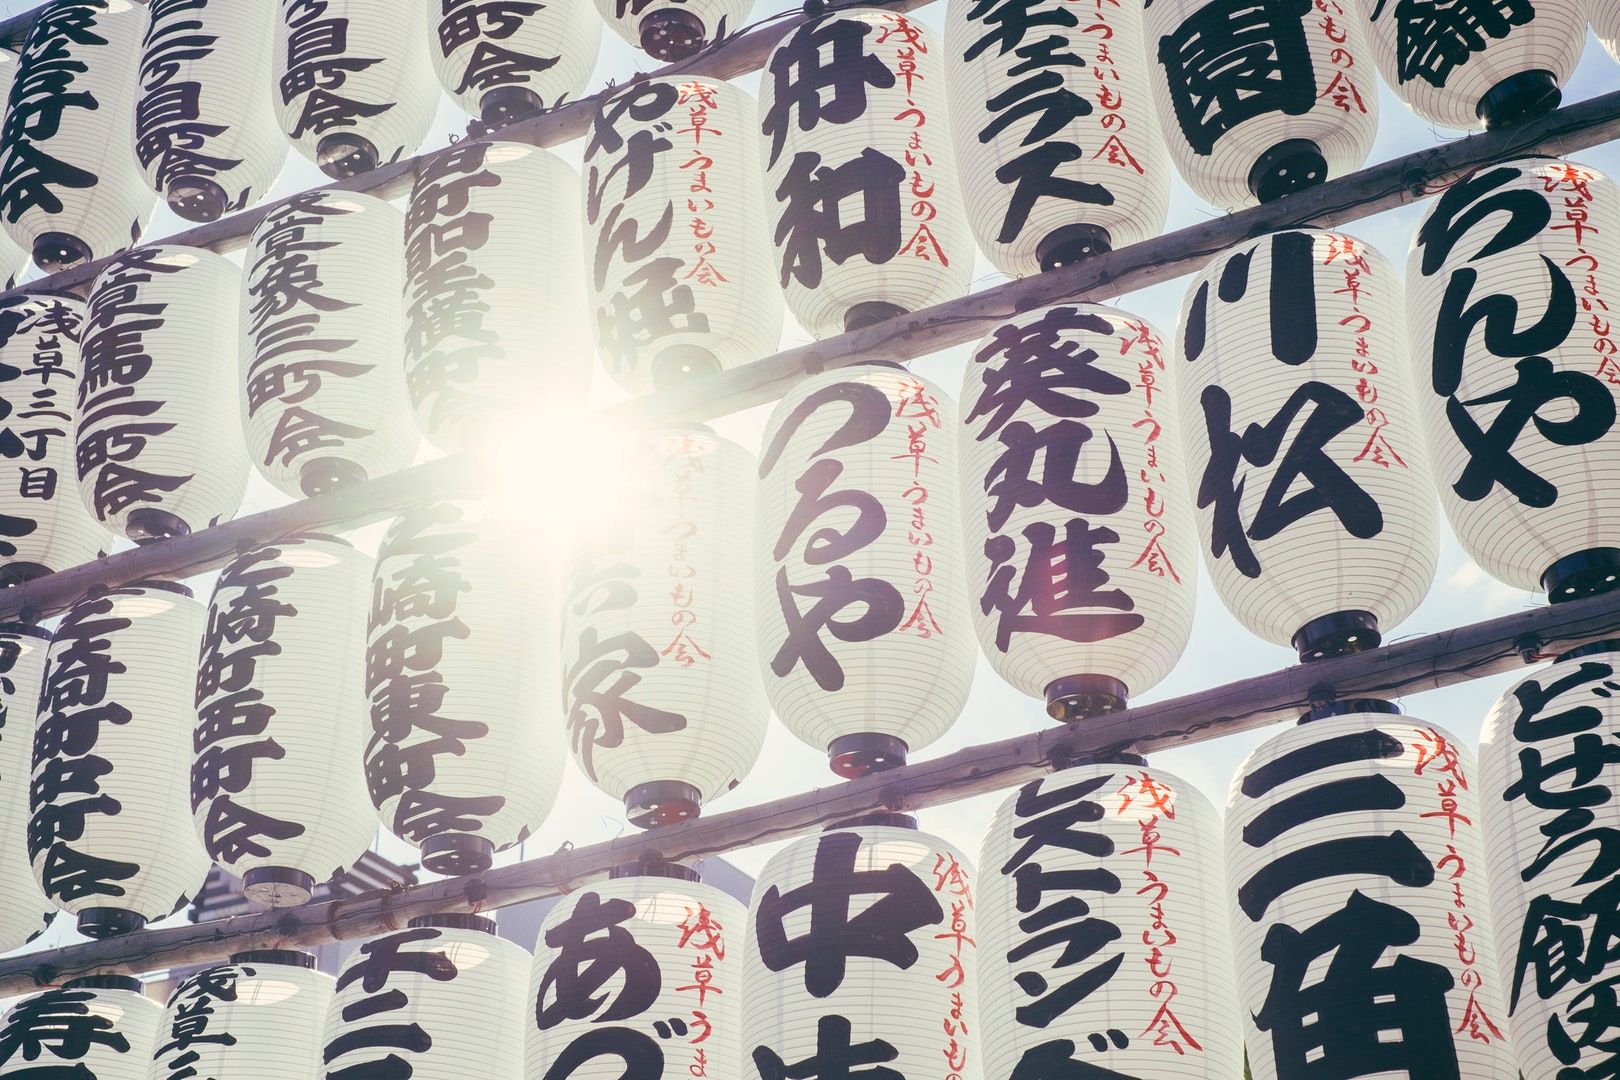 三町会
二町目町会
目町会
町会
浅草うまいもの会
やげん堀
浅草うまいもの会
舟和
うまいもの会
チェラス
いもの会
園
浅草象三町会
浅草馬二町会
浅草三丁目
浅草うまいもの会
家
浅草うまいもの会
つるや
浅草うまいもの会
葵丸進
浅草うまいもの会
川松
浅草うまいもの会
ちんや
芝崎町中町会
芝崎町西町会
芝崎町東町会
寿
浅草
浅草うま
あづ
浅草うまいも
中
浅草うまいもの会
レストラン
浅草うまいもの会
三角
どぜう飯田